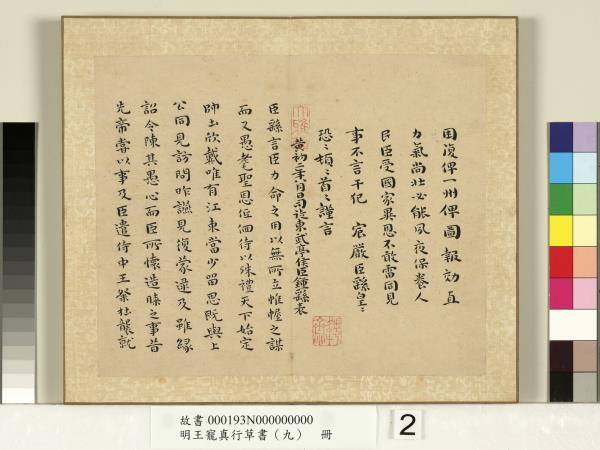 困復俾一州俾圖報効直
力氣尚壯必能夙夜保養人
民臣受國家異恩不敢雷同見
事不言干犯 宸嚴臣繇皇〻
恐〻頓〻首〻謹言
黃初二年八月日司徒東武亭侯臣鍾繇表
臣繇言臣力命之用以無所立帷幄之謀
而又愚耄聖恩低佪待以殊禮天下始定
帥土欣戴唯有江東當少留思既與上
公同見訪問昨讌見復蒙逮及雖緣
詔令陳其愚心而臣所懷造膝之事昔
先帝嘗以事及臣遣侍中王粲杜襲就
故書 000193N000000000
明王寵真行草書（九） 冊
2